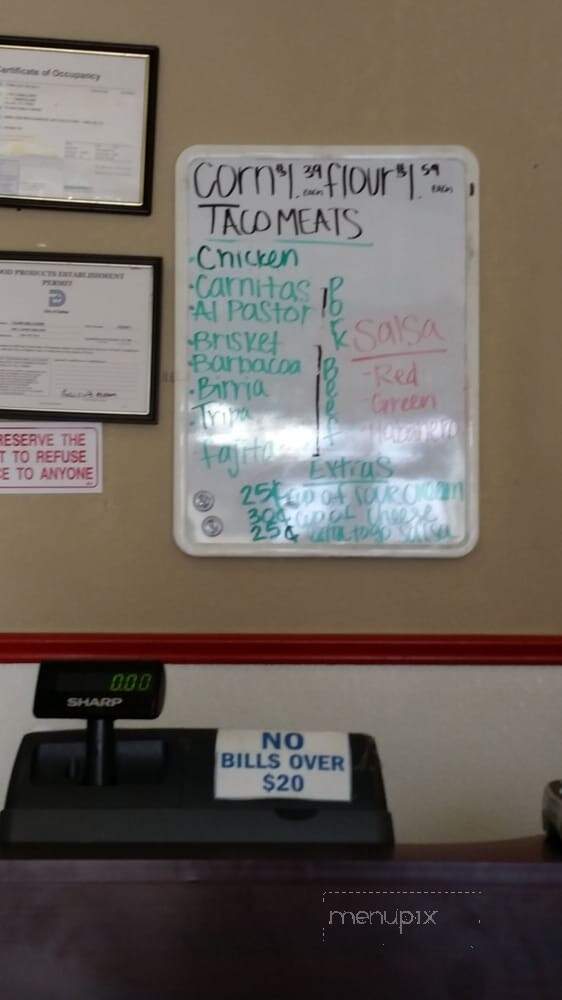 Certificate of Occupancy
FOOD PRODUCTS ESTABLISHMENT
PERMIT
RESERVE THE
T TO REFUSE
CE TO ANYONE
Corn $1.39 each flour $1.59 each
TACO MEATS
· Chicken
· Carnitas
· Al Pastor
Pork
· Brisket
· Barbacoa
· Birria
· Tripa
· Fajita
Beef
Salsa
- Red
- Green
- Habanero
Extras
25¢ cup of sour cream
30¢ cup of cheese
25¢ extra to go salsa
0.00
SHARP
NO
BILLS OVER
$20
menupix